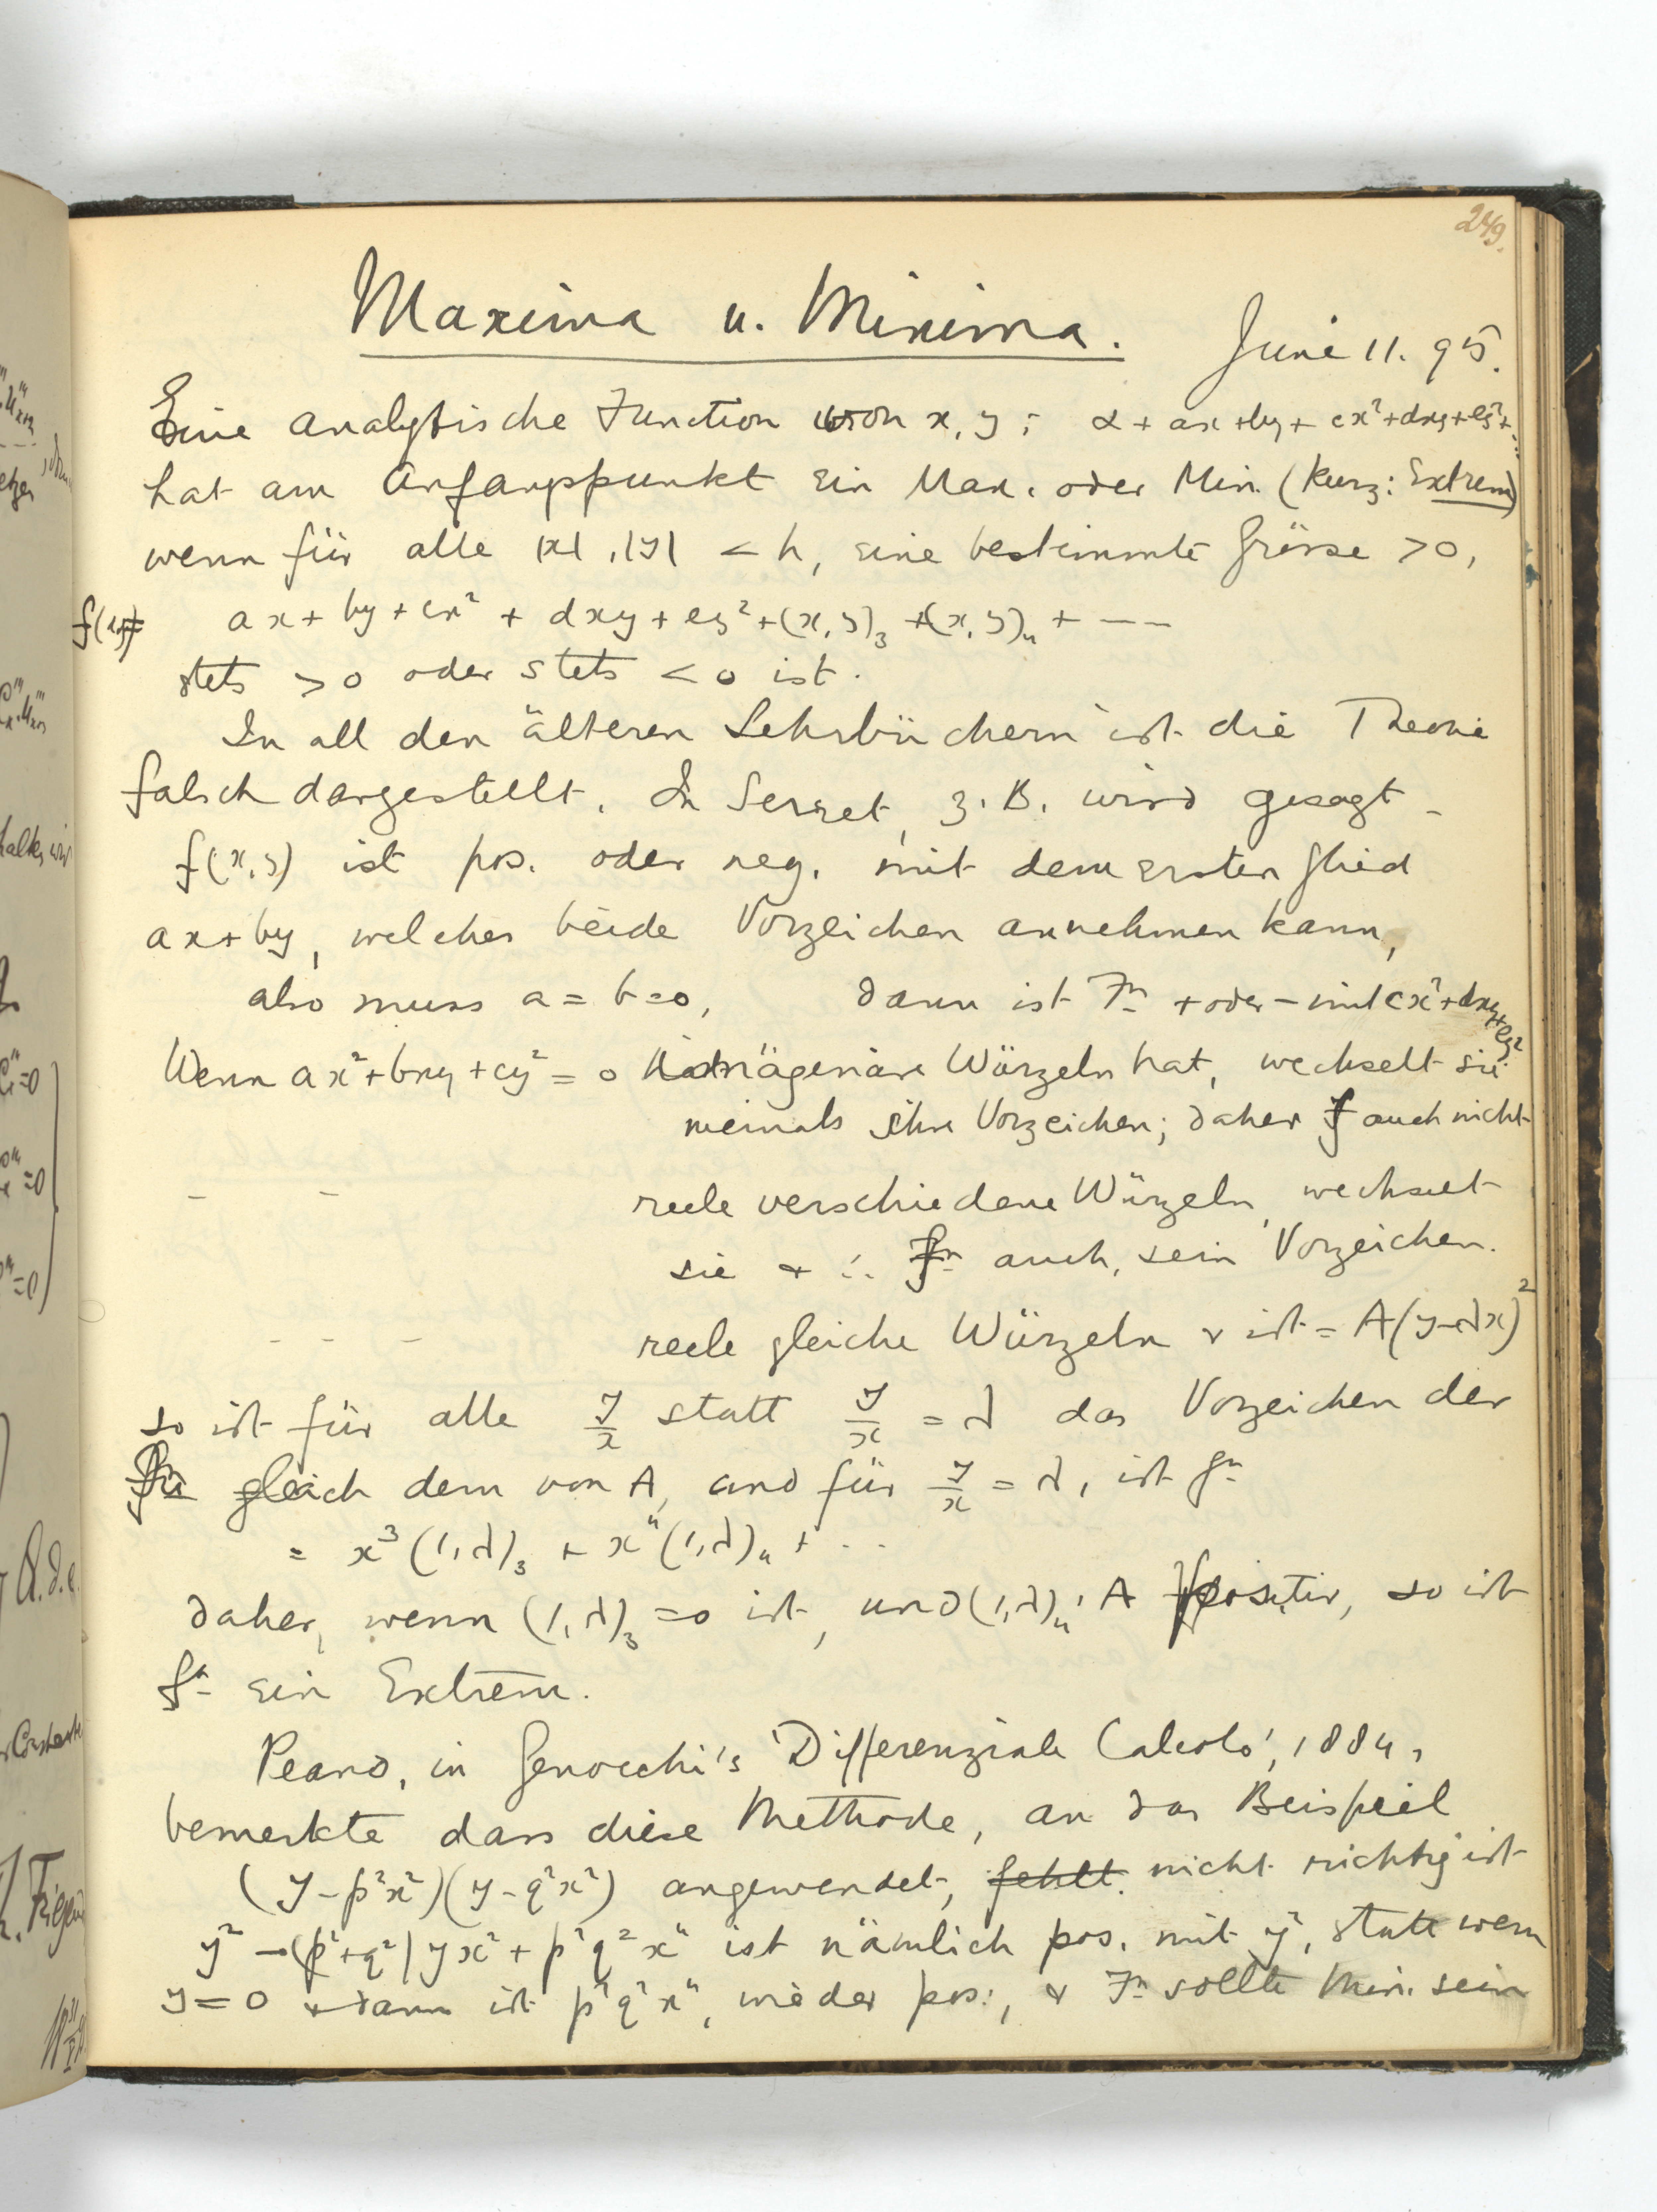 249.
Maxima u. Minima.
Juni 11. 95.
Eine analytische Function von x, y : α + ax + by + cx² + dxy + ey² + ...
hat am Anfangspunkt ein Max. oder Min. (kurz: Extrem)
wenn für alle |x|, |y| < h, eine bestimmte Grösse > 0,
f(xy)= ax + by + cx² + dxy + ey² + (x, y)₃ + (x, y)₄ + — —
stets > 0 oder stets < 0 ist.
In all den älteren Lehrbüchern ist die Theorie
falsch dargestellt. In Serret, z. B. wird gesagt -
f(x, y) ist pos. oder neg. mit dem ersten Glied
ax + by, welches beide Vorzeichen annehmen kann,
also muss a = b = 0, dann ist Fn + oder - mit cx² + dxy + ey²
Wenn ax² + bxy + cy² = 0 imägenäre Würzeln hat, wechselt sie
niemals ihre Vorzeichen; daher f auch nicht
– – reele verschiedene Würzeln, wechselt
sie & ∴ fn auch, sein Vorzeichen.
- - - reele gleiche Würzeln & ist = A(y-λx)²
so ist für alle y/x statt y/x = λ das Vorzeichen der
fn gleich dem von A, und für y/x = λ, ist fn
= x³(1, λ)₃ + x⁴(1, λ)₄ + ...
daher, wenn (1, λ)₃ = 0 ist, und (1, λ)₄ : A positiv, so ist
fn ein Extrem.
Peano, in Genocchi's 'Differenziale Calcolo', 1884,
bemerkte dass diese Methode, an das Beispiel
(y - p²x²)(y - q²x²) angewendet, fehlt. nicht richtig ist
y² - (p² + q²) yx² + p²q²x⁴ ist nämlich pos. mit y², statt wenn
y = 0 & dann ist p²q²x⁴, wieder pos., & Fn sollte Min. sein